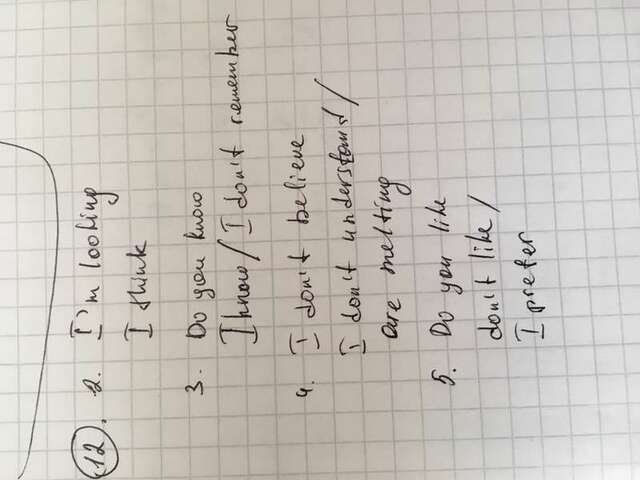 12. 2. I'm looking
I think
3. Do you know
I know / I don't remember
4. I don't believe
I don't understand /
are melting
5. Do you like
don't like /
I prefer